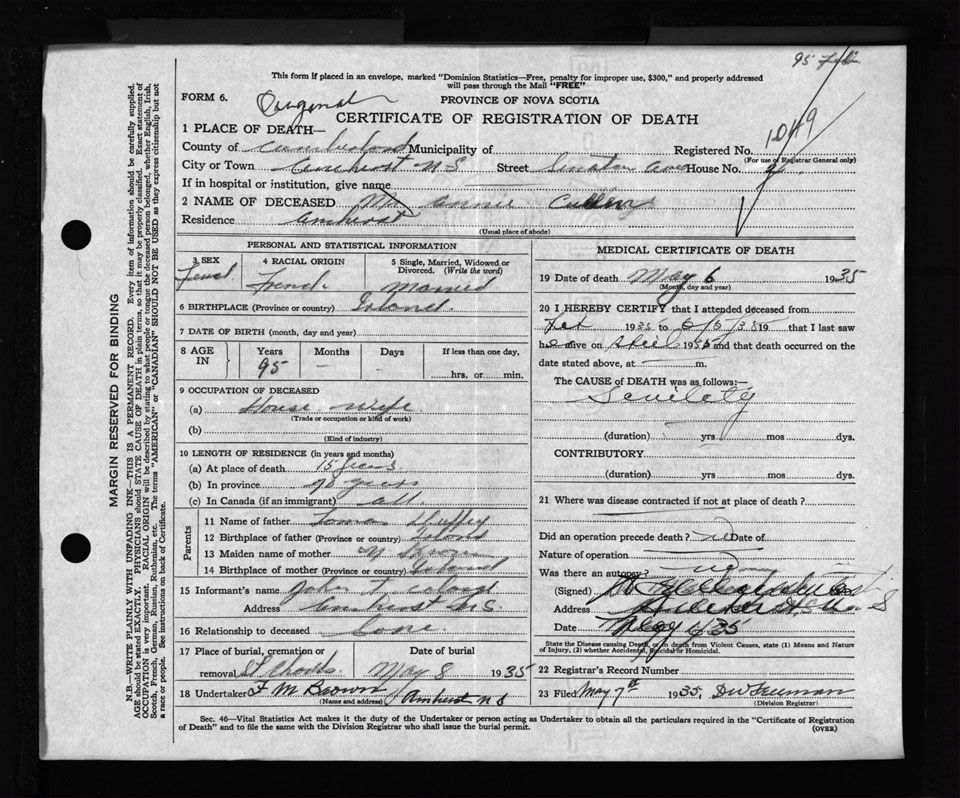 95
This form if placed in an envelope, marked "Dominion Statistics—Free, penalty for improper use, $300," and properly addressed
will pass through the Mail "FREE"
FORM 6. Original PROVINCE OF NOVA SCOTIA
CERTIFICATE OF REGISTRATION OF DEATH
1049
1 PLACE OF DEATH—
County of Cumberland Municipality of Registered No.
(For use of Registrar General only)
City or Town Amherst N S Street Ave House No.
If in hospital or institution, give name
2 NAME OF DECEASED Annie
Residence Amherst
(Usual place of abode)
PERSONAL AND STATISTICAL INFORMATION
3 SEX 4 RACIAL ORIGIN 5 Single, Married, Widowed or
Divorced. (Write the word)
Femal French Married
6 BIRTHPLACE (Province or country)
7 DATE OF BIRTH (month, day and year)
8 AGE IN Years Months Days If less than one day,
95 — —
hrs. or min.
9 OCCUPATION OF DECEASED
(a) House wife
(Trade or occupation or kind of work)
(b)
(Kind of industry)
10 LENGTH OF RESIDENCE (in years and months)
(a) At place of death 15 years
(b) In province years
(c) In Canada (if an immigrant) all
Parents
11 Name of father
12 Birthplace of father (Province or country)
13 Maiden name of mother
14 Birthplace of mother (Province or country)
15 Informant's name John T
Address Amherst N.S.
16 Relationship to deceased
17 Place of burial, cremation or Date of burial
removal May 8 1935
18 Undertaker F M Brown Amherst N S
(Name and address)
MEDICAL CERTIFICATE OF DEATH
19 Date of death May 6 1935
(Month, day and year)
20 I HEREBY CERTIFY that I attended deceased from
1935 to 19 that I last saw
h alive on 19 and that death occurred on the
date stated above, at m.
The CAUSE of DEATH was as follows:—
Senility
(duration) yrs mos dys.
CONTRIBUTORY
(duration) yrs mos dys.
21 Where was disease contracted if not at place of death ?
Did an operation precede death ? Date of
Nature of operation
Was there an autopsy?
(Signed)
Address
Date May 6/35
State the Disease causing Death, or in death from Violent Causes, state (1) Means and Nature
of Injury, (2) whether Accidental, Suicidal or Homicidal.
22 Registrar's Record Number
23 Filed May 7th 1935,
(Division Registrar)
Sec. 46—Vital Statistics Act makes it the duty of the Undertaker or person acting as Undertaker to obtain all the particulars required in the "Certificate of Registration
of Death" and to file the same with the Division Registrar who shall issue the burial permit.
(OVER)
MARGIN RESERVED FOR BINDING
N.B.—WRITE PLAINLY WITH UNFADING INK—THIS IS A PERMANENT RECORD. Every item of information should be carefully supplied.
AGE should be stated EXACTLY. PHYSICIANS should STATE CAUSE OF DEATH in plain terms, so that it may be properly classified. Exact statement of
OCCUPATION is very important. RACIAL ORIGIN will be described by stating to what people or tongue the deceased person belonged, whether English, Irish,
Scotch, French, German, Russian, Ruthenian, etc. The terms "AMERICAN" or "CANADIAN" SHOULD NOT BE USED as they express citizenship but not
a race or people. See instructions on back of Certificate.